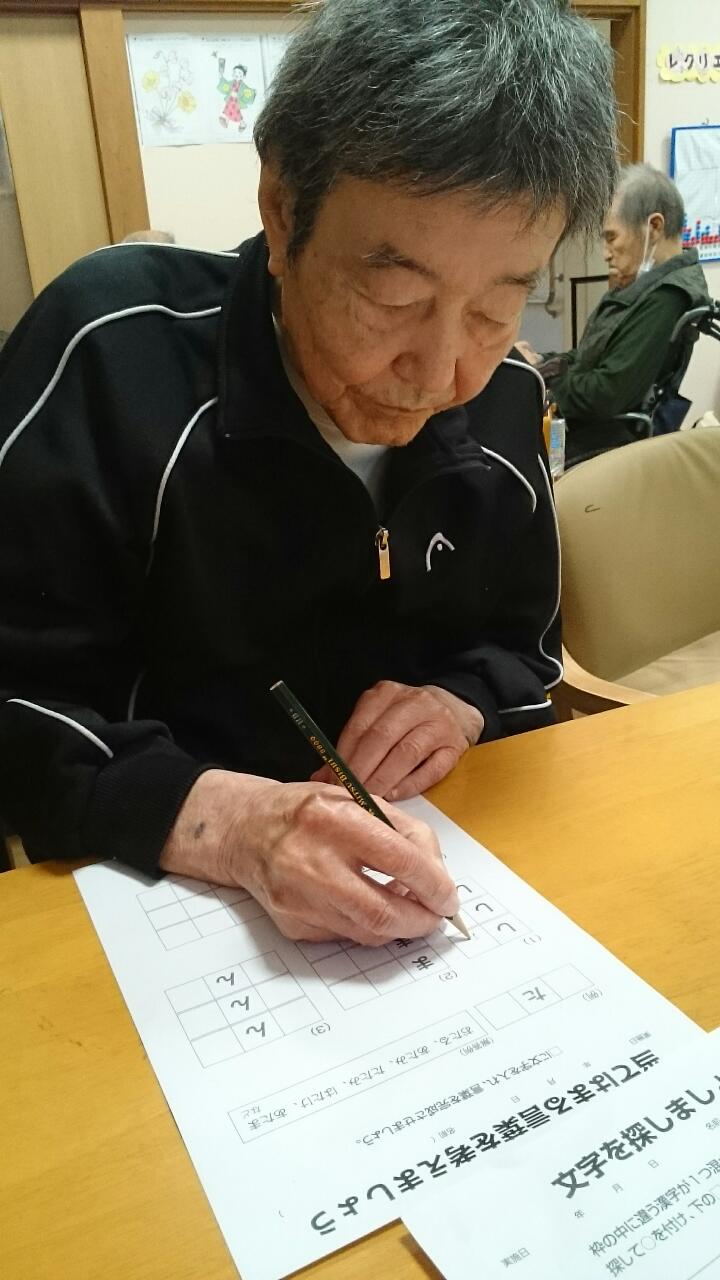 レクリエ
MITSU-BISHI 9800
当てはまる言葉を考えましょう
実施日 年 月 日 名前( )
□に文字を入れ、言葉を完成させましょう。
(解答例)
おたる、あたみ、たたみ、はたけ、あたま
など
(例)
た
(1)
し
し
し
(2)
ま
ま
(3)
ん
ん
ん
文字を探しまし
実施日 年 月 日 名前
枠の中に違う漢字が1つ混
探して○を付け、下の